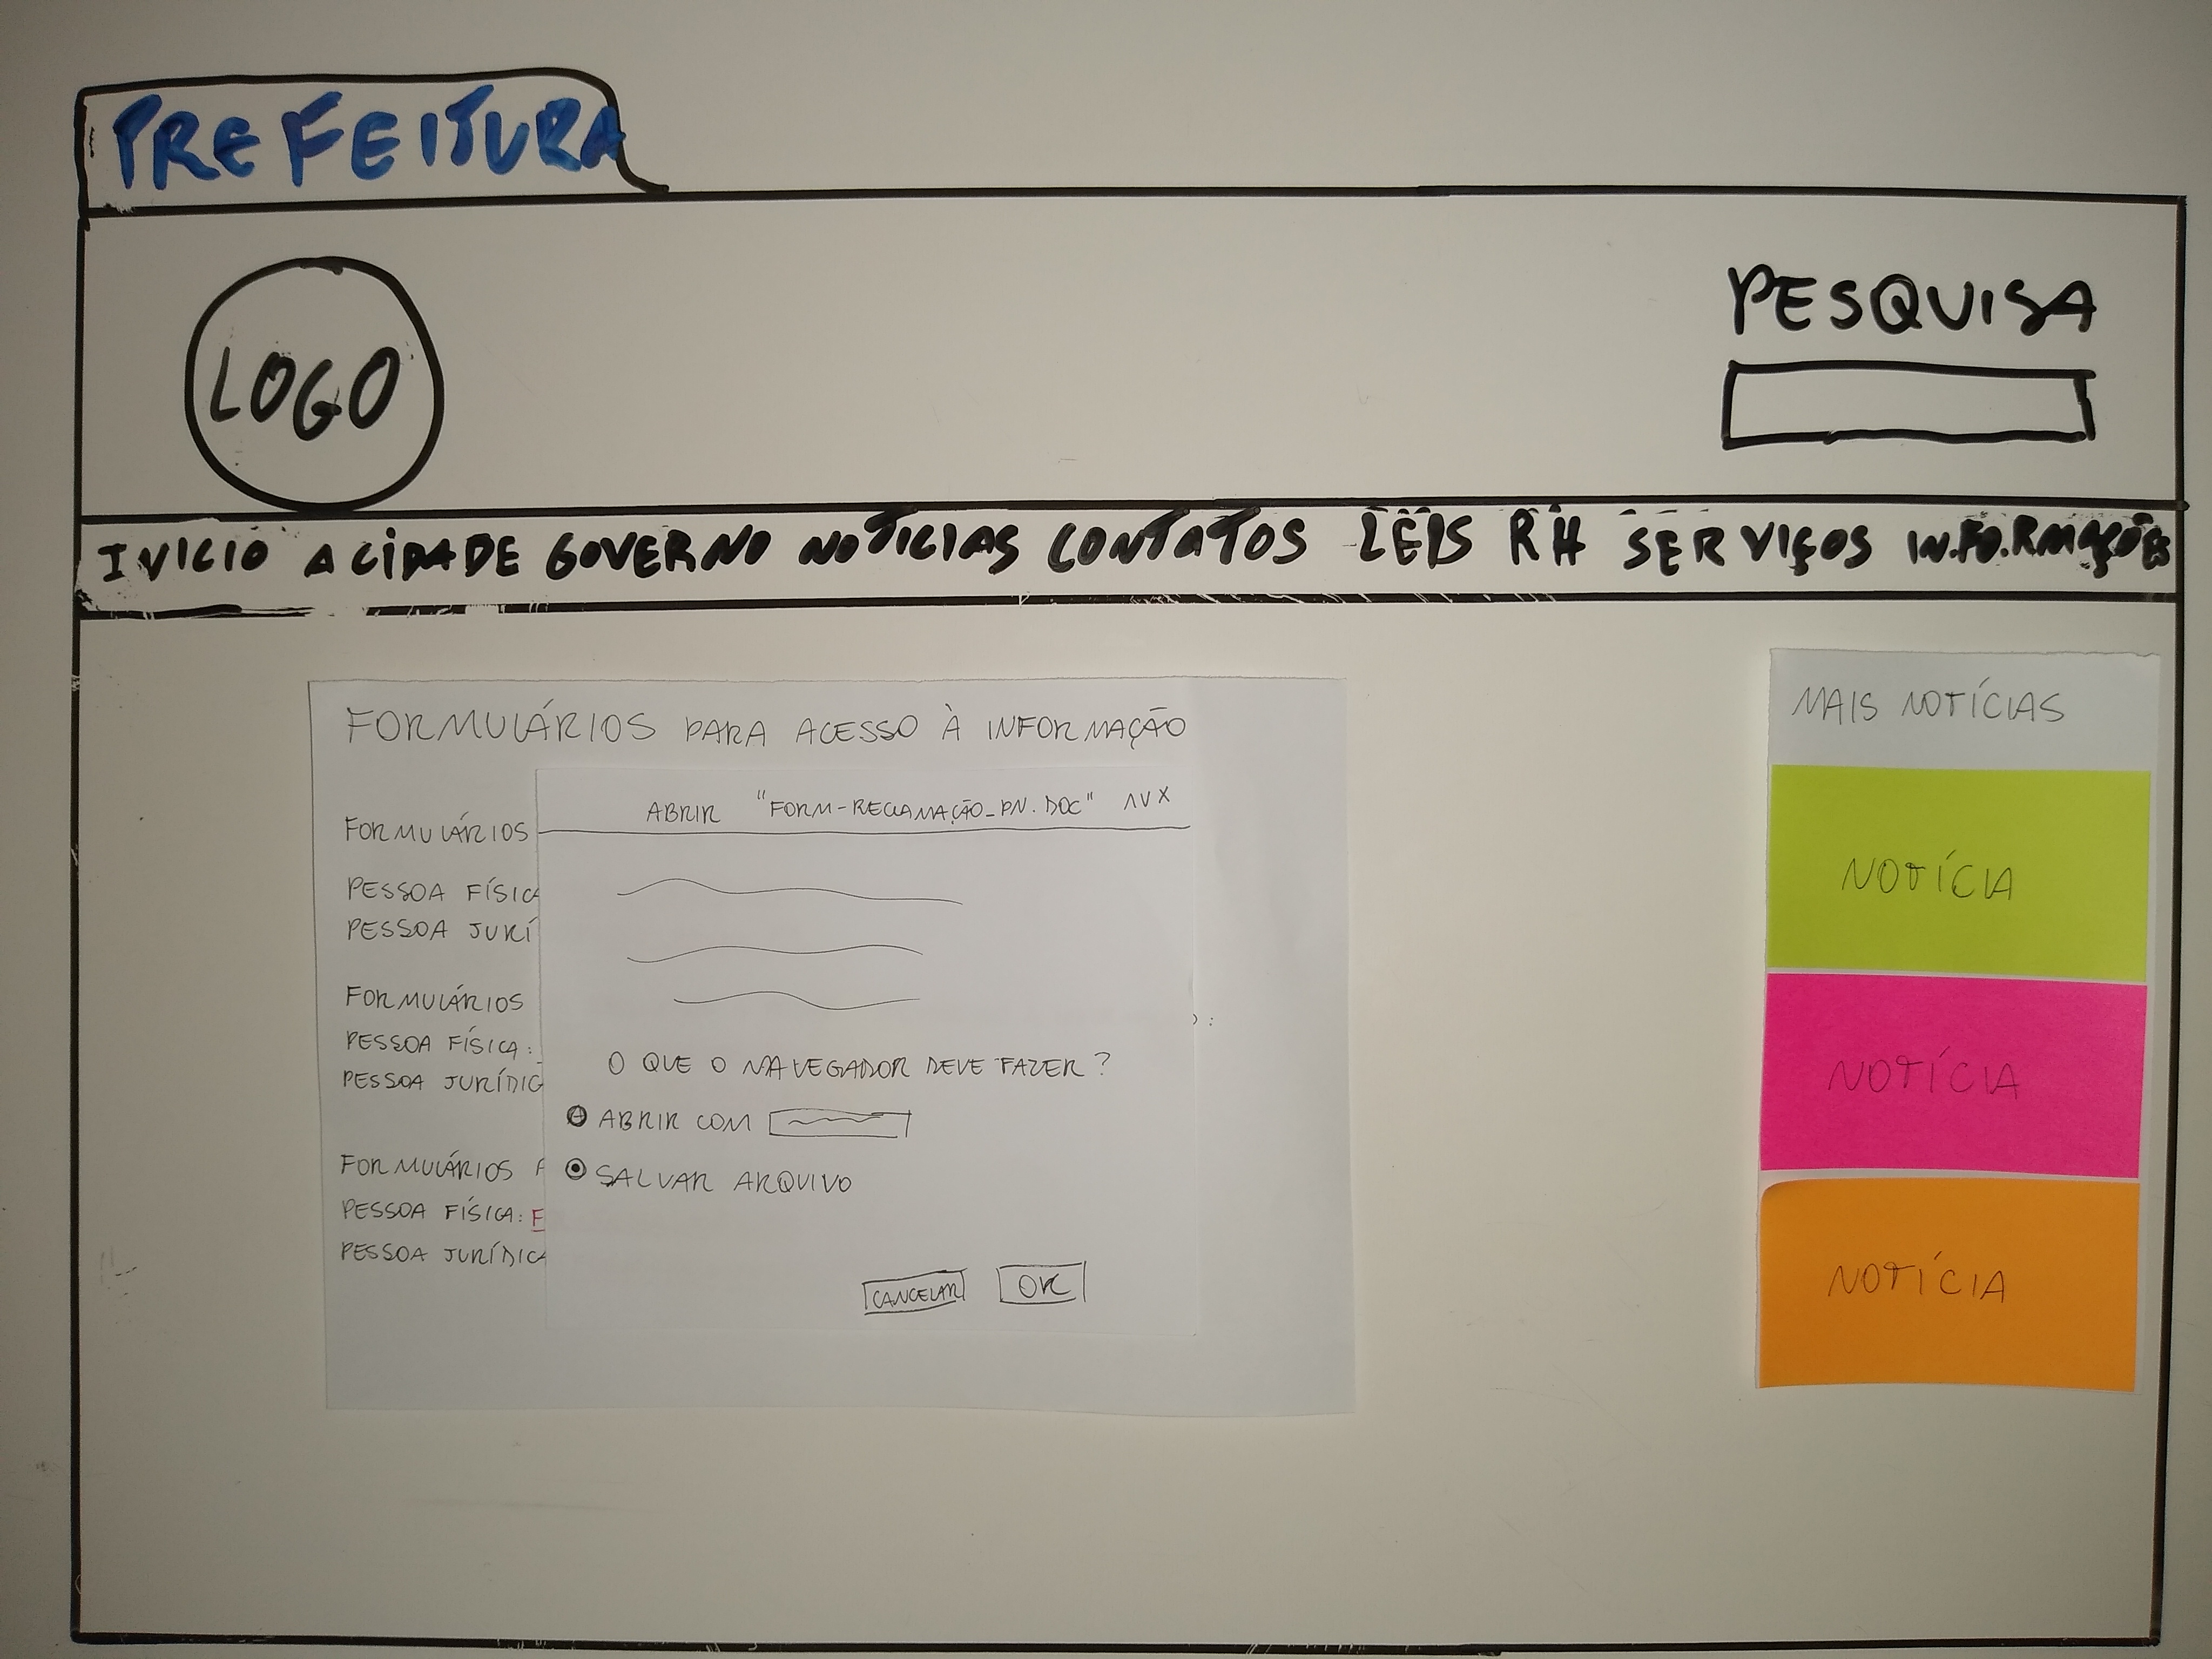 PREFEITURA
LOGO
PESQUISA
INICIO A CIDADE GOVERNO NOTICIAS CONTATOS LEIS RH SERVIÇOS INFORMAÇÕES
FORMULÁRIOS PARA ACESSO À INFORMAÇÃO
FORMULÁRIOS
PESSOA FÍSICA
PESSOA JURÍ
FORMULÁRIOS
PESSOA FÍSICA:
PESSOA JURÍDIC
FORMULÁRIOS
PESSOA FÍSICA: F
PESSOA JURÍDICA
ABRIR "FORM-RECLAMAÇÃO_PN.DOC" X
O QUE O NAVEGADOR DEVE FAZER?
ABRIR COM
SALVAR ARQUIVO
CANCELAR OK
MAIS NOTÍCIAS
NOTÍCIA
NOTÍCIA
NOTÍCIA